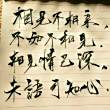 相見不相亲,
不如不相見。
相見情已深,
未語可知心